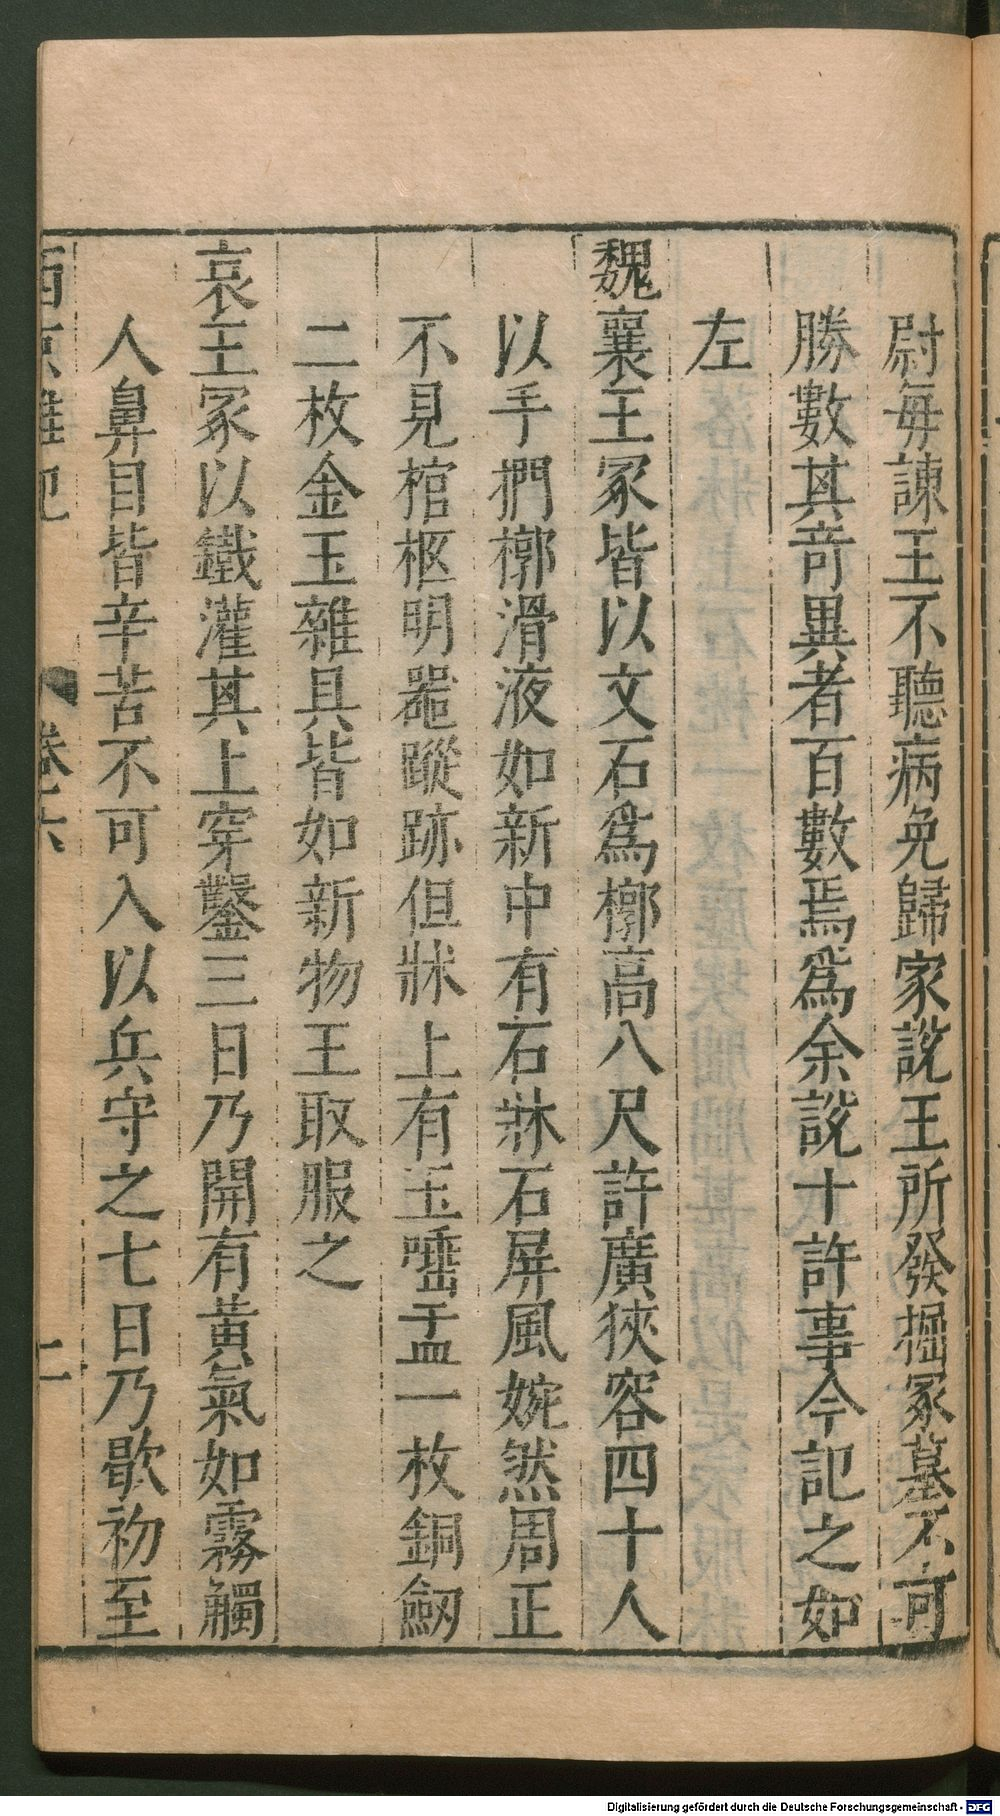 尉每諫王不聽病免歸家說王所發掘冢墓不可
勝數其奇異者百數焉爲余說十許事今記之如
左
魏襄王冢皆以文石爲槨高八尺許廣狹容四十人
以手捫槨滑液如新中有石牀石屏風婉然周正
不見棺柩明器蹤跡但牀上有玉唾盂一枚銅劒
二枚金玉雜具皆如新物王取服之
哀王冢以鐵灌其上穿鑿三日乃開有黃氣如霧觸
人鼻目皆辛苦不可入以兵守之七日乃歇初至
西京雜記 卷六 二
Digitalisierung gefördert durch die Deutsche Forschungsgemeinschaft - DFG